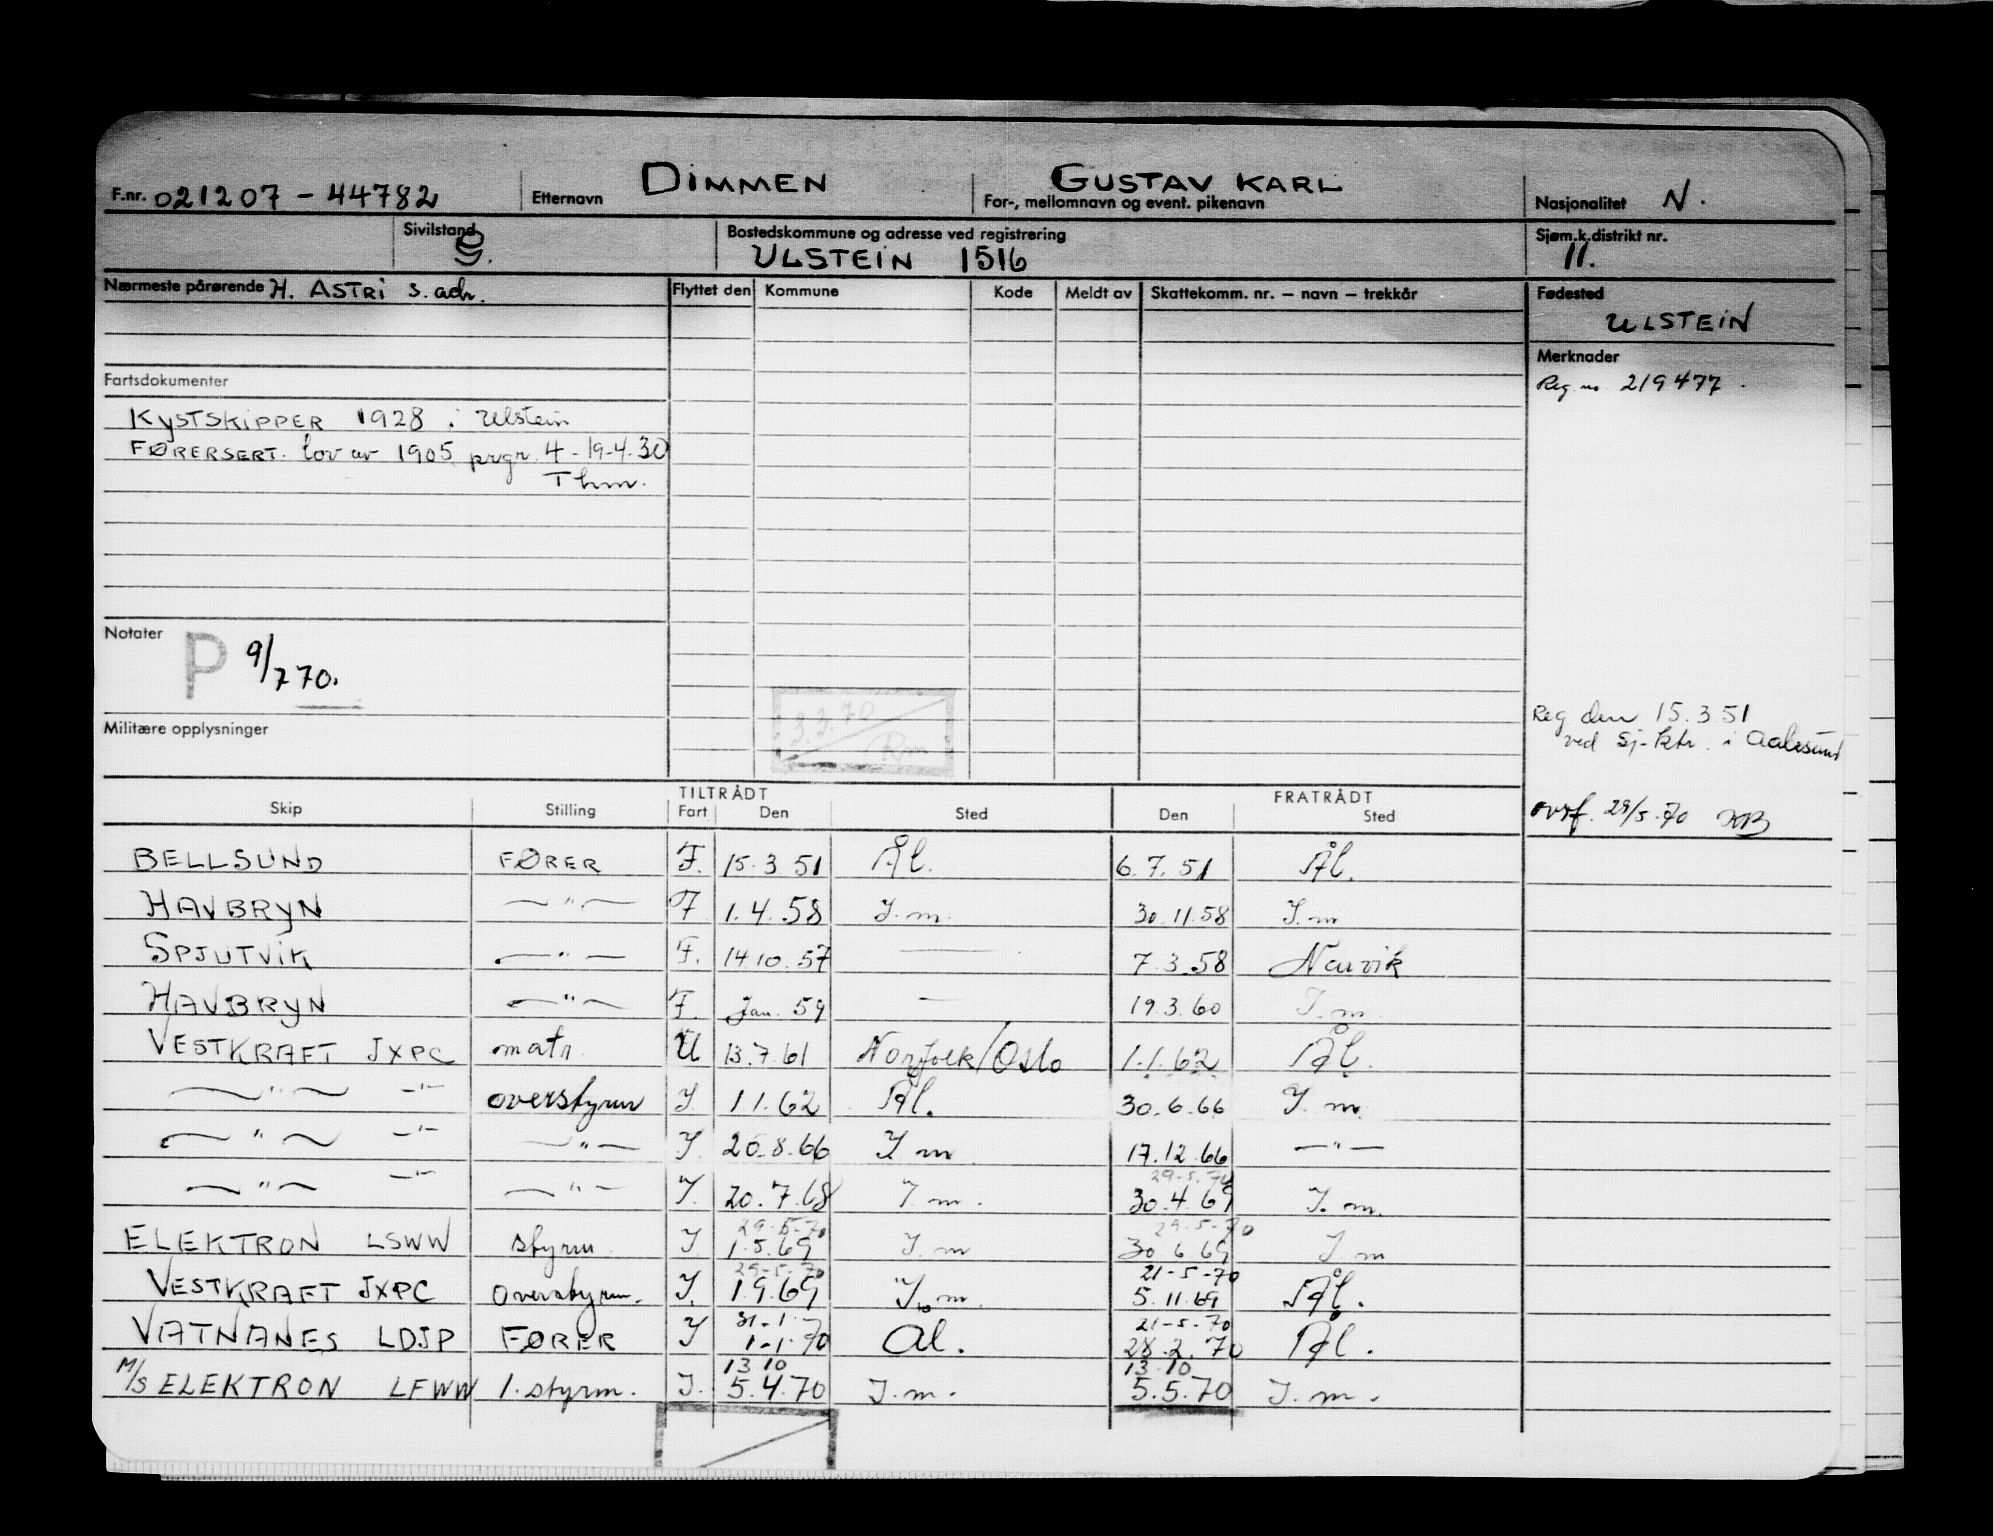 F.nr. 021207-44782 Etternavn DIMMEN For-, mellomnavn og event. pikenavn GUSTAV KARL Nasjonalitet N.
Sivilstand g. Bostedskommune og adresse ved registrering ULSTEIN 1516 Sjøm.k.distrikt nr. 11.
Nærmeste pårørende H. ASTRI s. adr. Flyttet den Kommune Kode Meldt av Skattekomm. nr. – navn – trekkår Fødested
ULSTEIN
Merknader
Reg. no 219477.
Fartsdokumenter
KYSTSKIPPER 1928 i Ulstein
FØRERSERT. lov av 1905 prgr. 4 - 19-4.30
Thm.
Notater P 9/7 70.
3.3.70
Militære opplysninger
Reg den 15.3.51
ved Sj-ktr. i Aalesund
ovrf. 29/5-70
Skip Stilling TILTRÅDT Fart Den Sted FRATRÅDT Den Sted
BELLSUND FØRER F. 15.3 51 Ål. 6.7.51 Ål.
HAVBRYN —"— F 1.4.58 I.m. 30.11.58 I.m
SPJUTVIK —"— F. 14.10.57 — 7.3.58 Narvik
HAVBRYN —"— F. Jan. 59 — 19.3.60 I.m
VESTKRAFT JXPC matr. U 13.7.61 Norfolk/Oslo 1.1.62 Ål.
—"— —"— overstyrm I 1.1.62 Ål. 30.6.66 I.m.
—"— —"— —"— I 20.8.66 I m 17.12.66 —"—
29-5-70
—"— —"— —"— I. 20.7.68 I.m. 30.4.69 I.m.
29-5-70 29-5-70
ELEKTRON LSWW styrm I 1.5.69 I.m 30.6.69 I.m
29-5-70 21-5-70
VESTKRAFT JXPC overstyrm. I. 1.9.69 I.m. 5.11.69 Ål.
31-1-7 21-5-70
VATNANES LDJP FØRER I 1-1-70 Ål. 28.2.70 Ål.
13 10 13.10
M/S ELEKTRON LFWW 1.styrm. I. 5.4.70 I.m. 5.5.70 I.m.